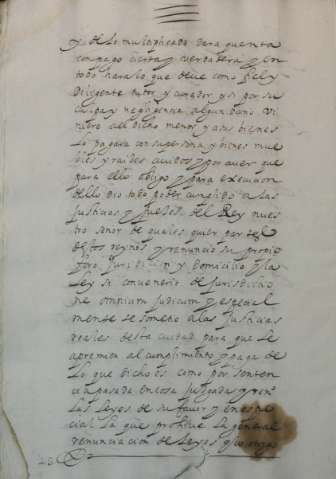 y de lo multiplicado dara quenta
con pago cierta y verdadera y en
todo hara lo que deve como fiel y
diligente tutor y curador y si por su
culpa y negligencia algun dano vi
niere al dicho menor y a sus bienes
lo pagara con su persona y bienes mue
bles y raices avidos y por aver que
para ello obligo y para execucion
dello dio todo poder cumplido a las
Justicias y Jueces del Rey nues
tro señor de quales quier partes
destos reynos y renuncio su propio
fuero Juridicion y Domicilio y la
Ley si convenerid de Jurisdicio
ne omnium Judicum y especial
mente se sometio a las Justicias
reales desta ciudad para que le
apremien al cumplimiento y paga de
lo que dicho es como por senten
cia pasada en cosa Juzgada y ren
las leyes de su favor y en espe
cial la que prohive la general
renunciacion de leyes